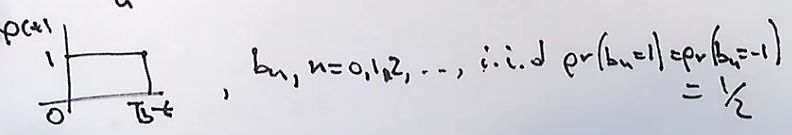 p(t)
1
0 T_b t
, b_n, n=0,1,2, ..., i.i.d pr(b_n=1)=pr(b_n=-1)
= 1/2